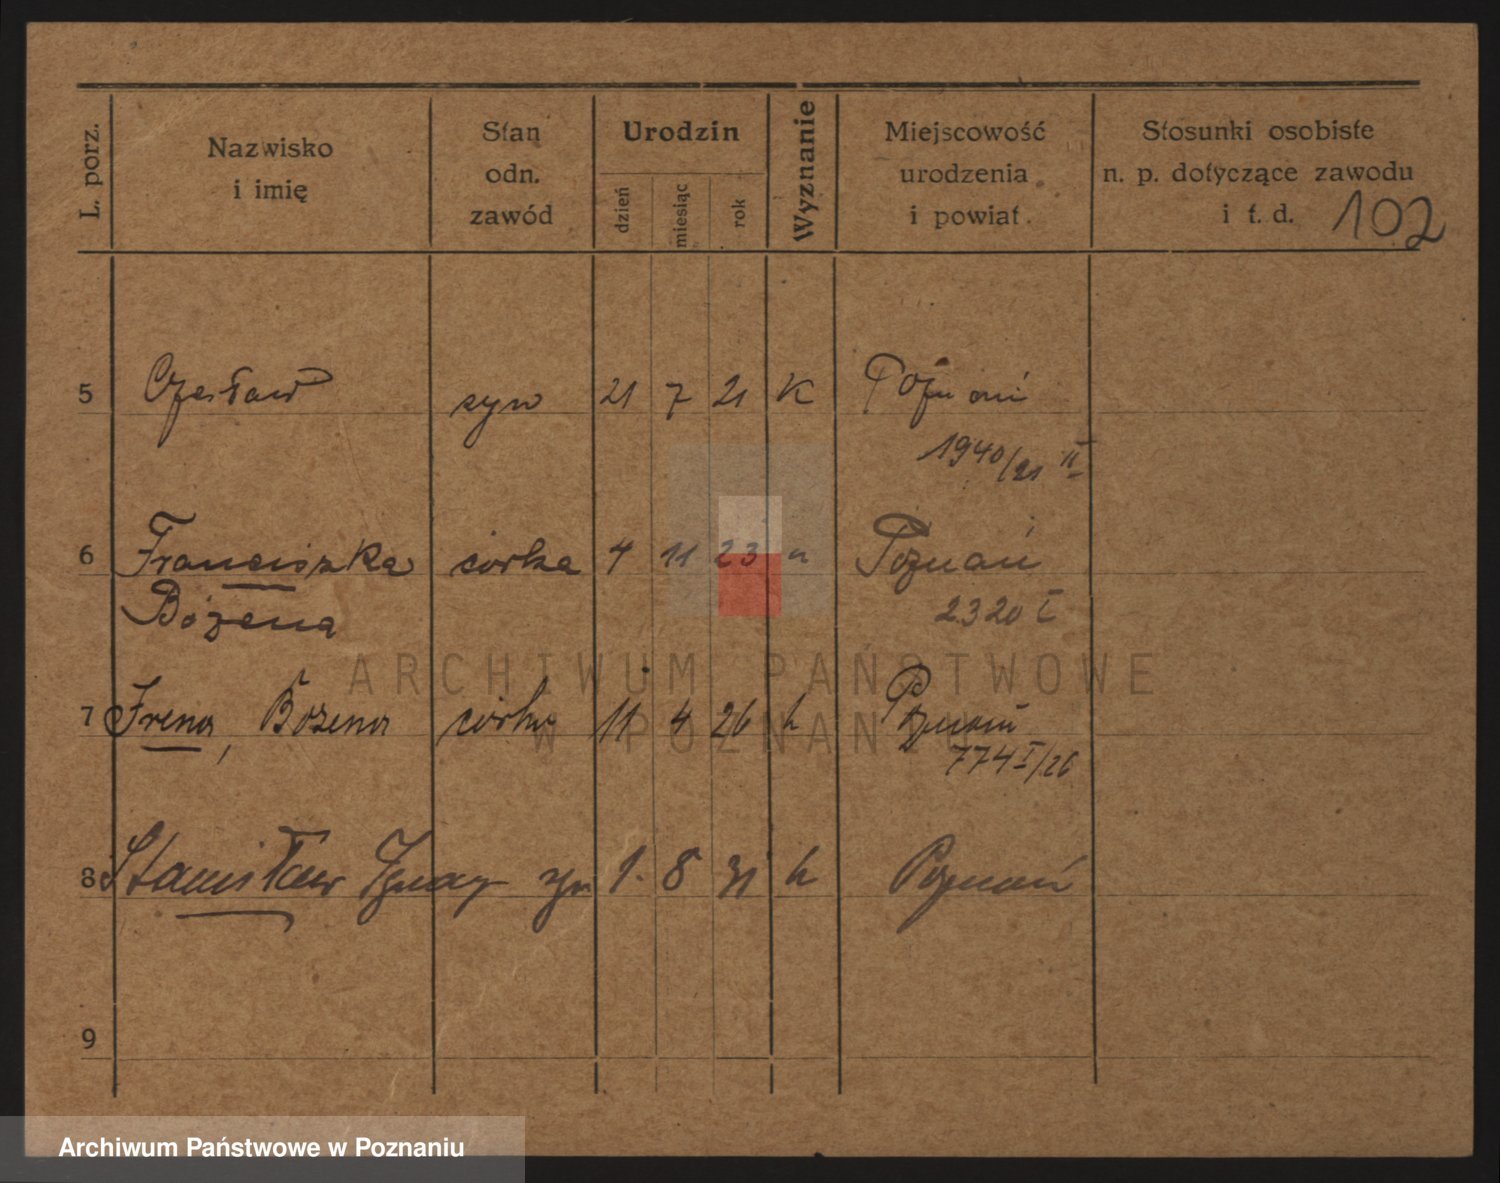 L. porz.
Nazwisko
i imię
Stan
odn.
zawód
Urodzin
dzień
miesiąc
rok
Wyznanie
Miejscowość
urodzenia
i powiat.
Stosunki osobiste
n. p. dotyczące zawodu
i t. d.
102
5 Czesław syn 21 7 21 K Poznań
1940/21 II
6 Franciszka córka 4 11 23 Poznań
Bożena 2320 I
7 Irena, Bożena córka 11 4 26 k Poznań
774 I/26
8 Stanisław Ignacy syn 1. 8 31 k Poznań
9
ARCHIWUM PAŃSTWOWE
W POZNANIU
Archiwum Państwowe w Poznaniu